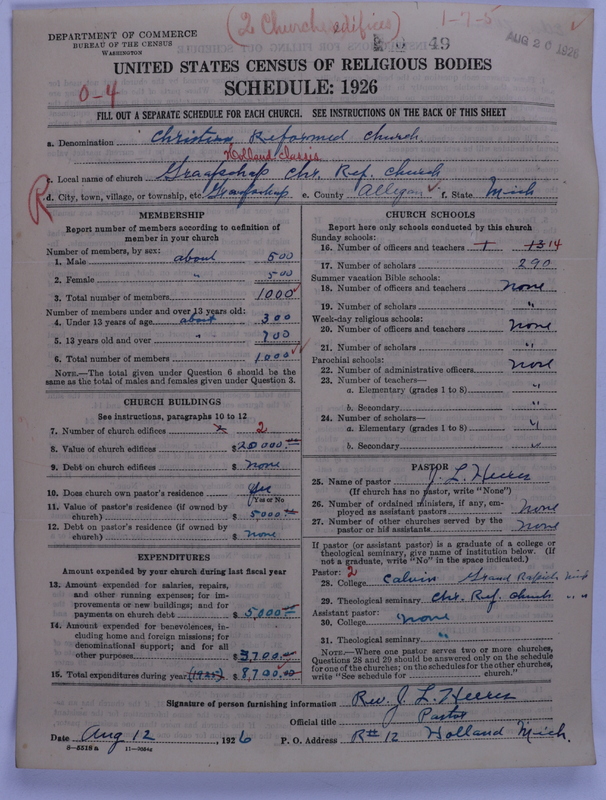 (2 Church edifices) 1-7-5
DEPARTMENT OF COMMERCE
BUREAU OF THE CENSUS
WASHINGTON
49
AUG 20 1926
UNITED STATES CENSUS OF RELIGIOUS BODIES
SCHEDULE: 1926
0-4
FILL OUT A SEPARATE SCHEDULE FOR EACH CHURCH. SEE INSTRUCTIONS ON THE BACK OF THIS SHEET
a. Denomination Christian Reformed Church
Holland classis
c. Local name of church Graafschap Chr. Ref. Church
R
d. City, town, village, or township, etc. Graafschap e. County Allegan f. State Mich
MEMBERSHIP
Report number of members according to definition of
member in your church
Number of members, by sex:
1. Male about 500
2. Female " 500
3. Total number of members 1000
Number of members under and over 13 years old:
4. Under 13 years of age about 300
5. 13 years old and over " 700
6. Total number of members 1000
NOTE.—The total given under Question 6 should be
same as the total of males and females given under Question 3.
CHURCH BUILDINGS
See instructions, paragraphs 10 to 12
7. Number of church edifices 2
8. Value of church edifices $ 20000.00
9. Debt on church edifices $ none
10. Does church own pastor's residence Yes
(Yes or No)
11. Value of pastor's residence (if owned by
church) $ 5000.00
12. Debt on pastor's residence (if owned by
church) $ none
EXPENDITURES
Amount expended by your church during last fiscal year
13. Amount expended for salaries, repairs,
and other running expenses; for im-
provements or new buildings; and for
payments on church debt $ 5,000.00
14. Amount expended for benevolences, in-
cluding home and foreign missions; for
denominational support; and for all
other purposes $ 3,700.00
15. Total expenditures during year (1925) $ 8,700.00
CHURCH SCHOOLS
Report here only schools conducted by this church
Sunday schools:
16. Number of officers and teachers 1 13 14
17. Number of scholars 290
Summer vacation Bible schools:
18. Number of officers and teachers none
19. Number of scholars "
Week-day religious schools:
20. Number of officers and teachers none
21. Number of scholars "
Parochial schools:
22. Number of administrative officers none
23. Number of teachers—
a. Elementary (grades 1 to 8) "
b. Secondary "
24. Number of scholars—
a. Elementary (grades 1 to 8) "
b. Secondary "
PASTOR
25. Name of pastor J. L. Heeres
(If church has no pastor, write "None")
26. Number of ordained ministers, if any, em-
ployed as assistant pastors none
27. Number of other churches served by the
pastor or his assistants none
If pastor (or assistant pastor) is a graduate of a college or
theological seminary, give name of institution below. (If
not a graduate, write "No" in the space indicated.)
Pastor: 2
28. College Calvin Grand Rapids Mich
29. Theological seminary Chr. Ref. church " "
Assistant pastor:
30. College none
31. Theological seminary "
NOTE.—Where one pastor serves two or more churches,
Questions 28 and 29 should be answered only on the schedule
for one of the churches; on the schedules for the other churches,
write "See schedule for church."
Signature of person furnishing information Rev. J. L. Heeres
Official title Pastor
Date Aug 12, 1926 P. O. Address R # 12 Holland Mich.
8-5519a 11-3054